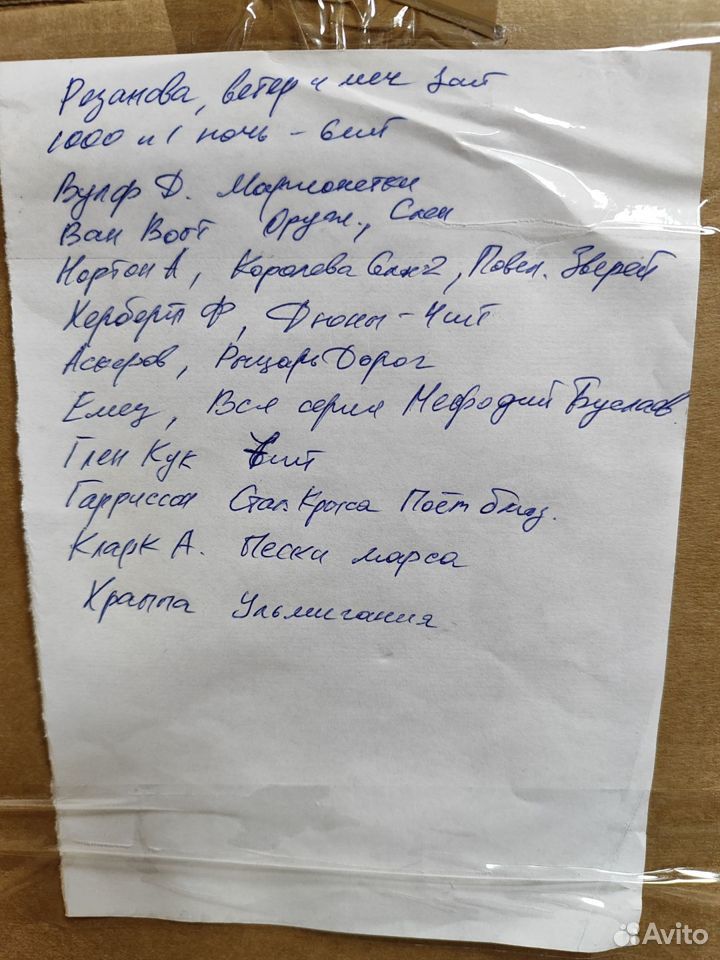 Резанова, ветер и меч 3шт
1000 и 1 ночь - 6шт
Вулф Д. Марионетки
Ван Вогт Оруж., Слен
Нортон А, Королева Солн2, Повел. Зверей
Херберт Ф, Дюны - 4шт
Аскеров, Рыцарь Дорог
Емец, Вся серия Мефодий Буслаев
Глен Кук шт
Гаррисон Стал. Крыса Поёт блюз.
Кларк А. Пески марса
Храппа Ульмигания
Avito